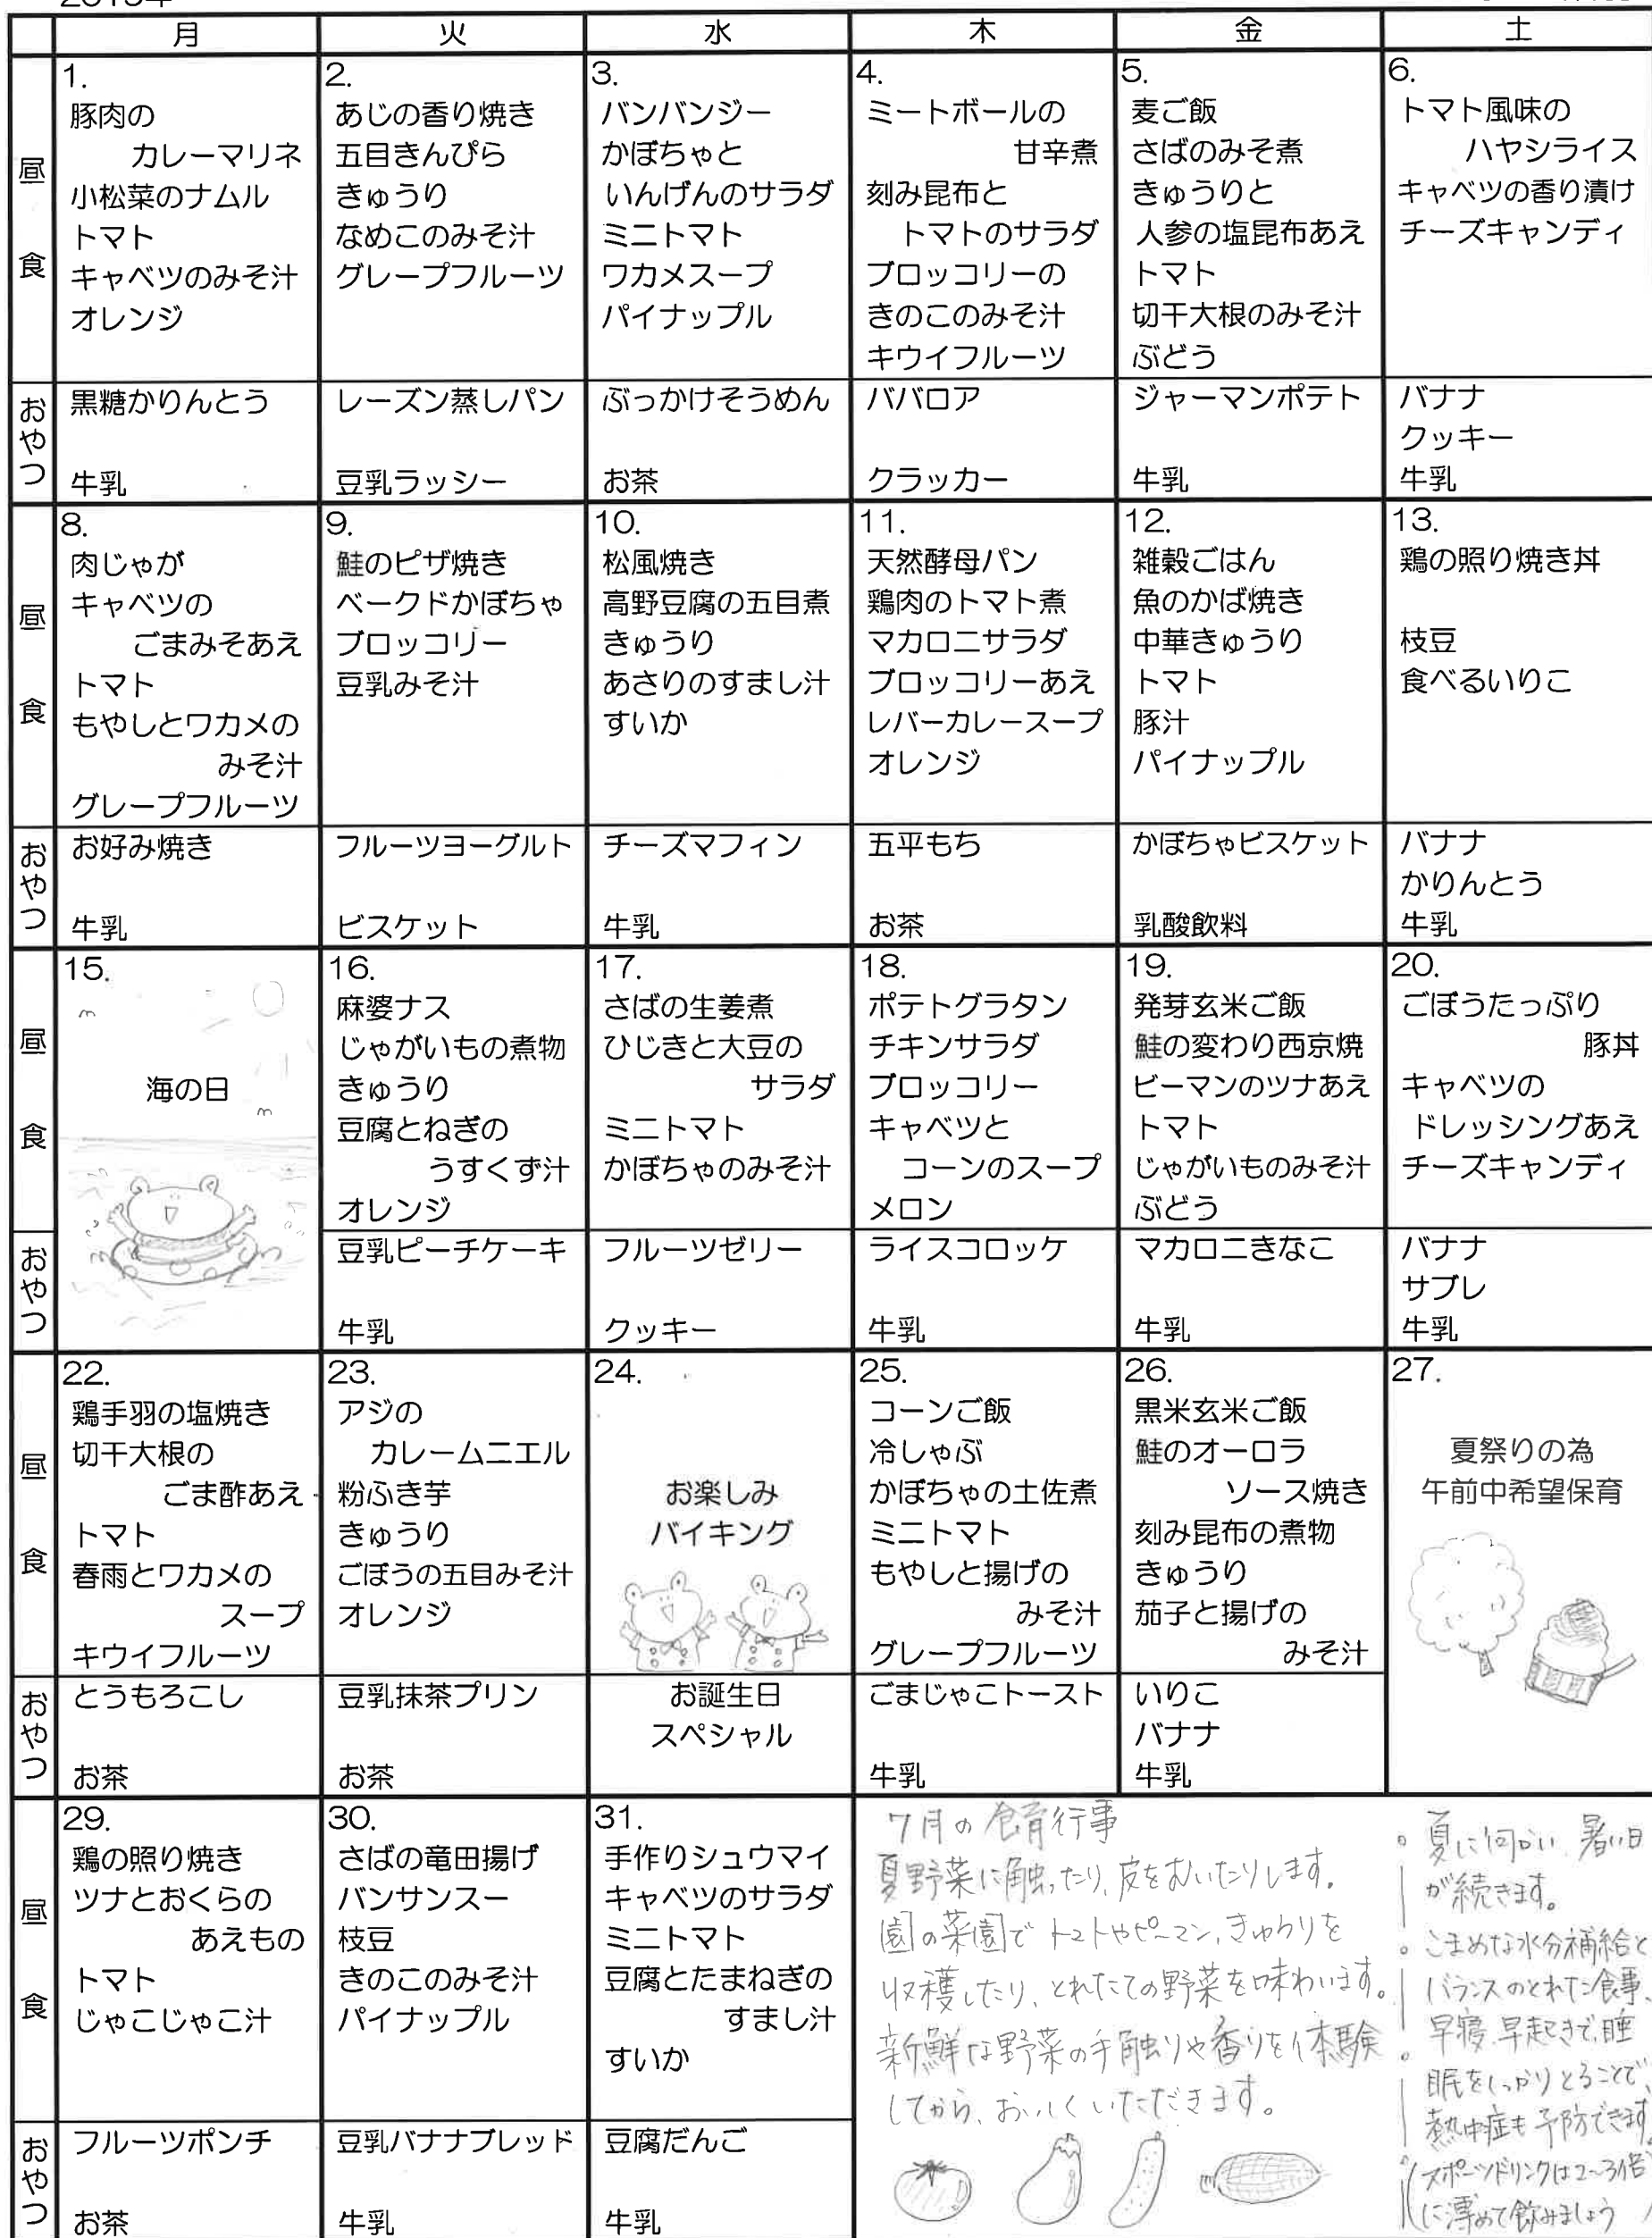 月 火 水 木 金 土
昼食
1.
豚肉の
カレーマリネ
小松菜のナムル
トマト
キャベツのみそ汁
オレンジ
2.
あじの香り焼き
五目きんぴら
きゅうり
なめこのみそ汁
グレープフルーツ
3.
バンバンジー
かぼちゃと
いんげんのサラダ
ミニトマト
ワカメスープ
パイナップル
4.
ミートボールの
甘辛煮
刻み昆布と
トマトのサラダ
ブロッコリーの
きのこのみそ汁
キウイフルーツ
5.
麦ご飯
さばのみそ煮
きゅうりと
人参の塩昆布あえ
トマト
切干大根のみそ汁
ぶどう
6.
トマト風味の
ハヤシライス
キャベツの香り漬け
チーズキャンディ
おやつ
黒糖かりんとう
牛乳
レーズン蒸しパン
豆乳ラッシー
ぶっかけそうめん
お茶
ババロア
クラッカー
ジャーマンポテト
牛乳
バナナ
クッキー
牛乳
昼食
8.
肉じゃが
キャベツの
ごまみそあえ
トマト
もやしとワカメの
みそ汁
グレープフルーツ
9.
鮭のピザ焼き
ベークドかぼちゃ
ブロッコリー
豆乳みそ汁
10.
松風焼き
高野豆腐の五目煮
きゅうり
あさりのすまし汁
すいか
11.
天然酵母パン
鶏肉のトマト煮
マカロニサラダ
ブロッコリーあえ
レバーカレースープ
オレンジ
12.
雑穀ごはん
魚のかば焼き
中華きゅうり
トマト
豚汁
パイナップル
13.
鶏の照り焼き丼
枝豆
食べるいりこ
おやつ
お好み焼き
牛乳
フルーツヨーグルト
ビスケット
チーズマフィン
牛乳
五平もち
お茶
かぼちゃビスケット
乳酸飲料
バナナ
かりんとう
牛乳
昼食
15.
海の日
16.
麻婆ナス
じゃがいもの煮物
きゅうり
豆腐とねぎの
うすくず汁
オレンジ
17.
さばの生姜煮
ひじきと大豆の
サラダ
ミニトマト
かぼちゃのみそ汁
18.
ポテトグラタン
チキンサラダ
ブロッコリー
キャベツと
コーンのスープ
メロン
19.
発芽玄米ご飯
鮭の変わり西京焼
ピーマンのツナあえ
トマト
じゃがいものみそ汁
ぶどう
20.
ごぼうたっぷり
豚丼
キャベツの
ドレッシングあえ
チーズキャンディ
おやつ
豆乳ピーチケーキ
牛乳
フルーツゼリー
クッキー
ライスコロッケ
牛乳
マカロニきなこ
牛乳
バナナ
サブレ
牛乳
昼食
22.
鶏手羽の塩焼き
切干大根の
ごま酢あえ
トマト
春雨とワカメの
スープ
キウイフルーツ
23.
アジの
カレームニエル
粉ふき芋
きゅうり
ごぼうの五目みそ汁
オレンジ
24.
お楽しみ
バイキング
25.
コーンご飯
冷しゃぶ
かぼちゃの土佐煮
ミニトマト
もやしと揚げの
みそ汁
グレープフルーツ
26.
黒米玄米ご飯
鮭のオーロラ
ソース焼き
刻み昆布の煮物
きゅうり
茄子と揚げの
みそ汁
27.
夏祭りの為
午前中希望保育
おやつ
とうもろこし
お茶
豆乳抹茶プリン
お茶
お誕生日
スペシャル
ごまじゃこトースト
牛乳
いりこ
バナナ
牛乳
昼食
29.
鶏の照り焼き
ツナとおくらの
あえもの
トマト
じゃこじゃこ汁
30.
さばの竜田揚げ
バンサンスー
枝豆
きのこのみそ汁
パイナップル
31.
手作りシュウマイ
キャベツのサラダ
ミニトマト
豆腐とたまねぎの
すまし汁
すいか
おやつ
フルーツポンチ
お茶
豆乳バナナブレッド
牛乳
豆腐だんご
牛乳
7月の食育行事
夏野菜に触ったり、皮をむいたりします。
園の菜園でトマトやピーマン、きゅうりを
収穫したり、とれたての野菜を味わいます。
新鮮な野菜の手触りや香りを体験
してから、おいしくいただきます。
夏に向かい、暑い日
が続きます。
こまめな水分補給と
バランスのとれた食事、
早寝、早起きで、睡
眠をしっかりとることで、
熱中症も予防できます。
スポーツドリンクは2〜3倍
に薄めて飲みましょう